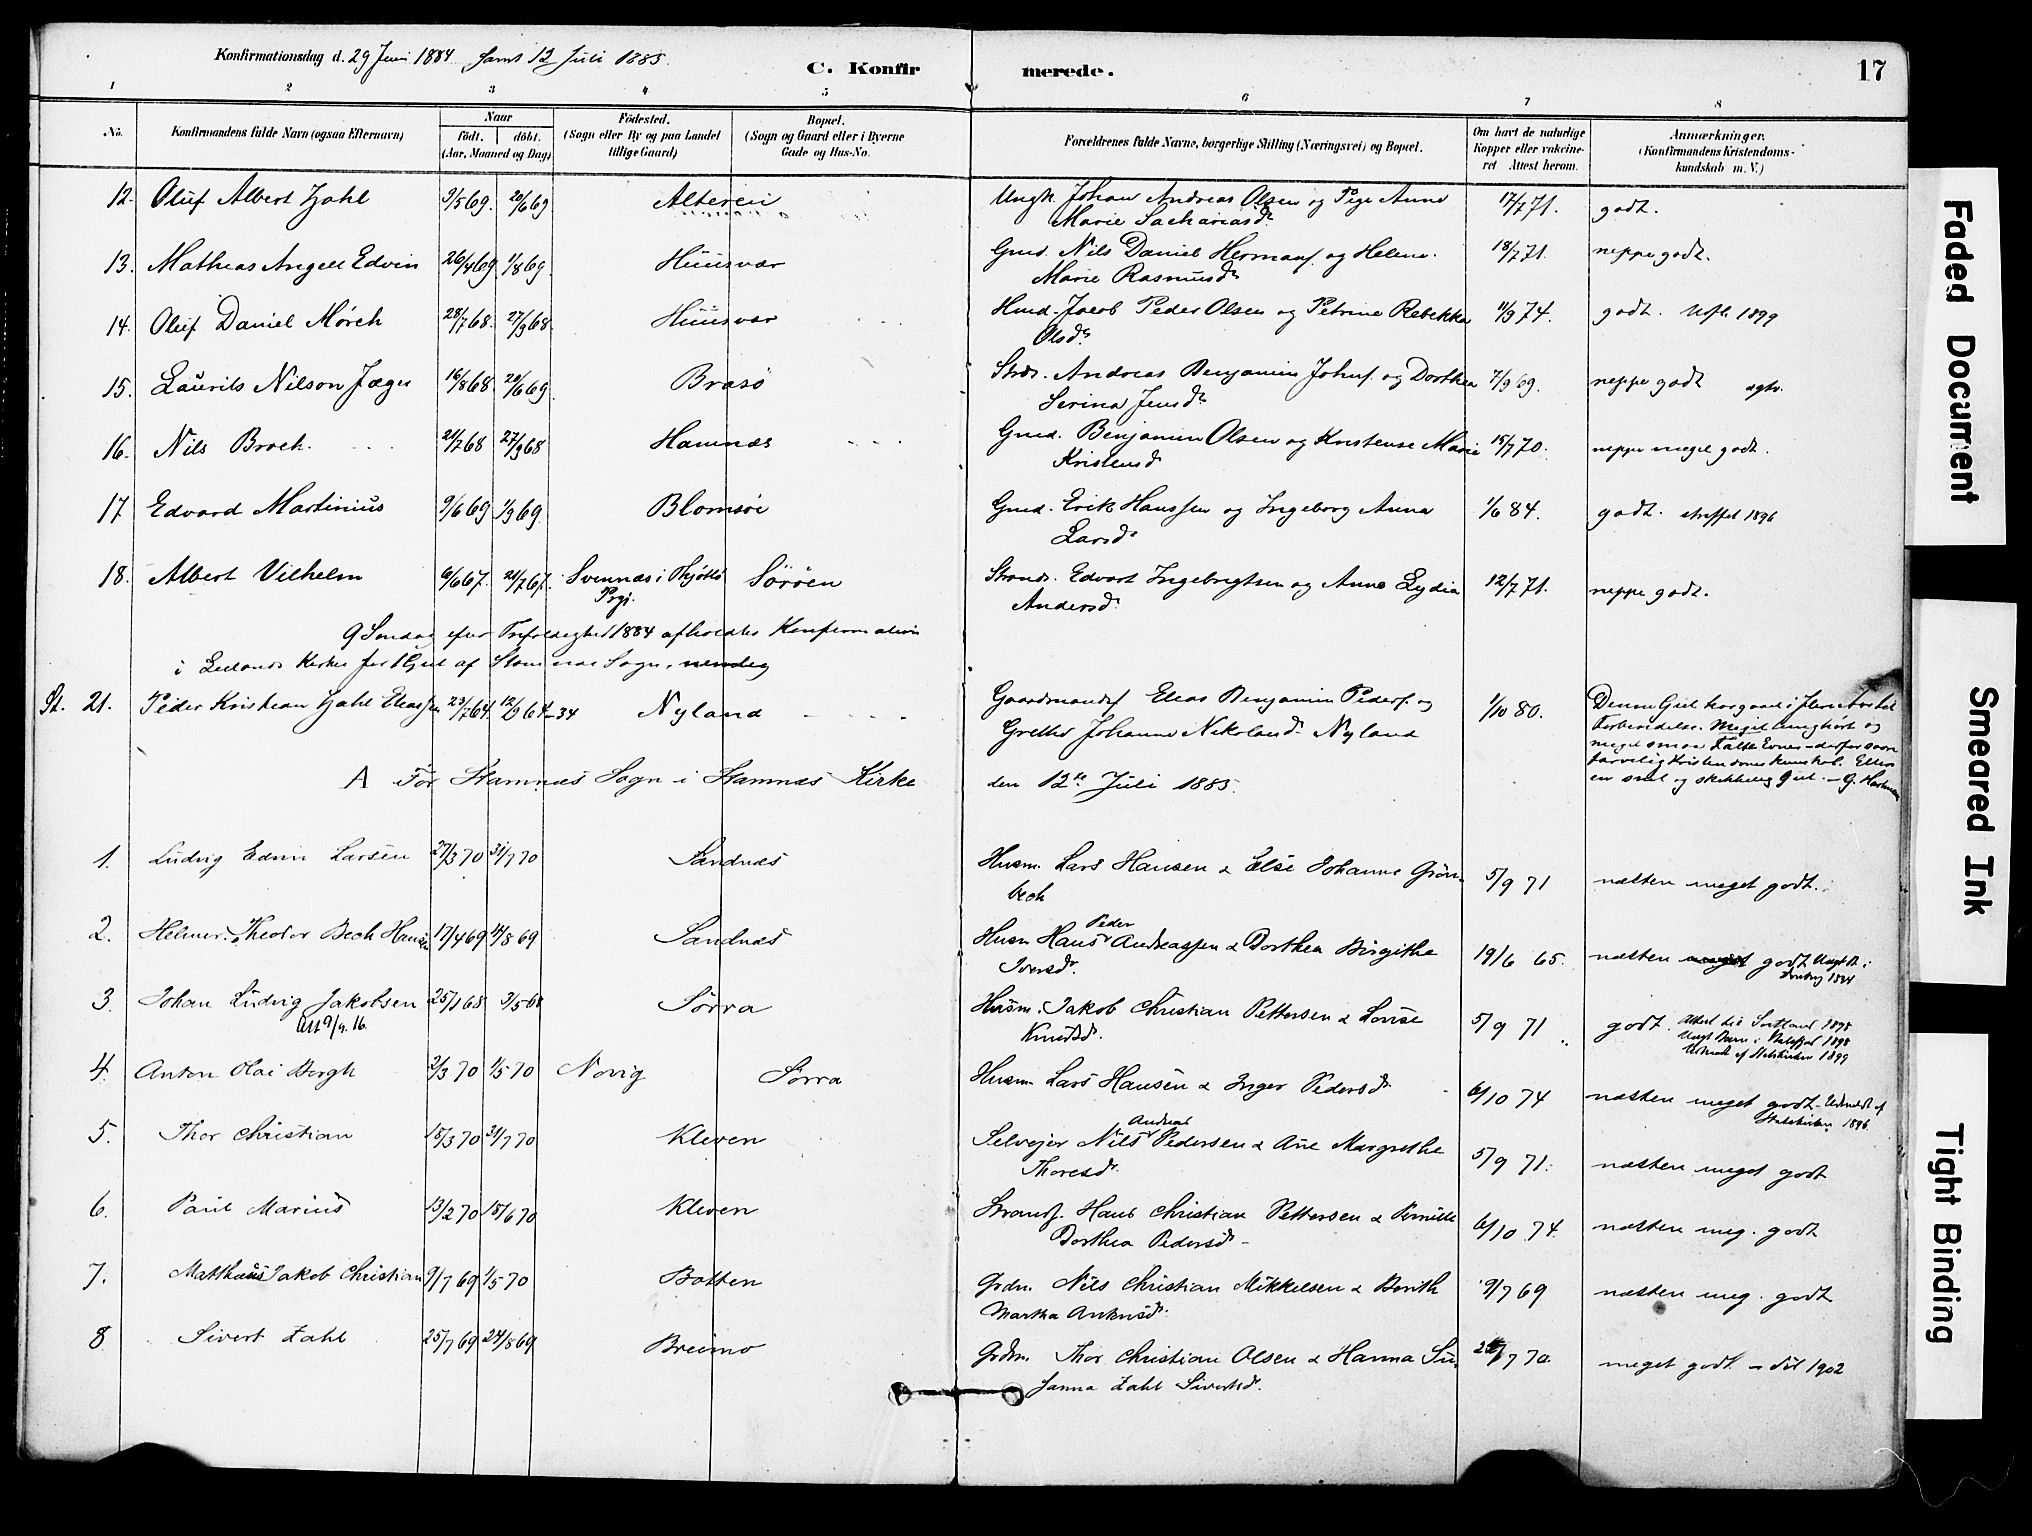 Konfirmationsdag d. 29 Juni 1884 samt 12 Juli 1885.
C. Konfir merede.
17
1 2 3 4 5 6 7 8
No. Konfirmandens fulde Navn (ogsaa Efternavn) Naar født. døbt. (Aar, Maaned og Dag) Fødested. (Sogn eller By og paa Landet tillige Gaard) Bopæl. (Sogn og Gaard eller i Byerne Gade og Hus-No. Forældrenes fulde Navne, borgerlige Stilling (Næringsvei) og Bopæl. Om havt de naturlige Kopper eller vakcineret Attest herom. Anmærkninger. (Konfirmandens Kristendomskundskab m. V.)
12. Oluf Albert Zahl 3/5 69. 20/6 69 Alteren Ungk. Johan Andreas Olsen og Pige Anne 17/7 71. godt.
Marie Sachariasd.
13. Mathias Angell Edvin 26/4 69 1/8 69. Huusvær Gmd. Nils Daniel Hermans. og Helene 18/7 71. neppe godt.
Marie Rasmusd.
14. Oluf Daniel Mørch 28/7 68. 27/9 68 Huusvær Hmd. Jacob Peder Olsen og Petrine Rebekka 11/9 74. godt. Utfl. 1899
Olsd.
15. Laurits Nilson Jæger 16/8 68 20/6 69. Brasø Strds. Andreas Benjamin Johns. og Dorthea 7/9 69. neppe godt
Serina Jensd.
16. Nils Broch. 21/7 68 27/9 68 Hamnæs Gmd. Benjamin Olsen og Kristense Marie 15/7 70. neppe meget godt.
Kristensd.
17 Edvard Martinius 9/6 69 1/9 69. Blomsøe Gmd. Erik Hanssen og Ingeborg Anna 1/6 84. godt. straffet 1896
Larsd.
18. Albert Vilhelm 6/6 67. 21/7 67. Svennæs i Thjøttø Sørøen Strands. Edvart Ingebrigtsen og Anne Lydia 12/7 71. neppe godt.
Prgj. Andersd.
9 Søndag efter Trefoldighed 1884 afholdtes Konfirmation
i Leilands Kirke for 1 Gut af Stamnæs Sogn, nemlig
St. 21. Peder Kristian Zahl Eliassen 23/7 64. 12/9 64-34 Nyland Gaardmands. Elias Benjamin Peders. og 1/10 80. Denne Gut har gaaet i flere Aar til
Grethe Johanna Nikolaisd. Nyland Forberedelse. Meget tunghørt og
meget smaa Evner - derfor saare
tarvelig Kristendomskundskab. Ellers
en snil og skikkelig Gut. - G. Hartmann
A For Stamnæs Sogn i Stamnæs Kirke den 12te Juli 1885.
1. Ludvig Edvin Larsen 27/3 70 31/7 70 Sandnæs Husm. Lars Hansen & Else Johanne Grøn- 5/9 71 næsten meget godt.
bech
2. Helmer Theodor Bech Hansen 17/4 69 14/8 69 Sandnæs Husm Hans Peder Andreassen & Dorthea Birgithe 19/6 65. næsten meget godt
Iversd.
3. Johan Ludvig Jakobsen 25/1 68 3/5 68 Sørra Husm. Jakob Christian Pettersen & Lovise 5/9 71 godt. Attest til Sortland 1898
Att 9/9. 16. Knudsd. Udmeldt af Statskirken 1899
4. Anton Olai Bergh 2/3 70 1/5 70 Novig Sørra Husm Lars Hansen & Inger Pedersd. 6/10 74 næsten meget godt - Udmeldt af
Statskirken 1896.
5. Thor Christian 15/3 70 31/7 70 Kleven Selveier Nils Andreas Pedersen & Ane Margrethe 5/9 71. næsten meget godt
Thoresd.
6. Paul Marius 13/2 70 15/6 70 Kleven Strands. Hans Christian Pettersen & Pernille 6/10 74. næsten meg. godt
Dorthea Pedersd. -
7. Matthæus Jakob Christian 9/7 69 1/5 70 Botten Grdm. Nils Christian Mikkelsen & Berith 9/7 69 næsten meg. godt
Martha Antonsd.
8 Sivert Zahl 25/7 69 24/8 69 Breimo Grdm. Thor Christian Olsen & Hanna Su- 7 70. meget godt - død 1902
sanna Zahl Sivertsd.
Faded Document
Smeared Ink
Tight Binding